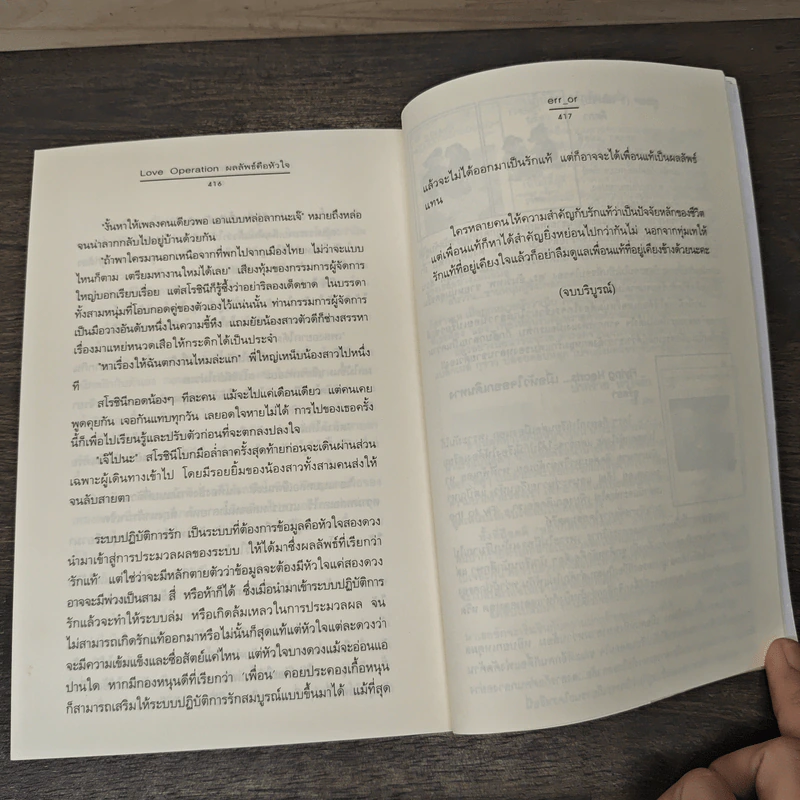 Love Operation ผลลัพธ์คือหัวใจ
416
"งั้นหาให้เพลงคนเดียวพอ เอาแบบหล่อลากนะเจ๊" หมายถึงหล่อ
จนน่าลากกลับไปอยู่บ้านด้วยกัน
"ถ้าพาใครมานอกเหนือจากที่พกไปจากเมืองไทย ไม่ว่าจะแบบ
ไหนก็ตาม เตรียมหางานใหม่ได้เลย" เสียงทุ้มของกรรมการผู้จัดการ
ใหญ่บอกเรียบเรื่อย แต่สโรชินีก็รู้ซึ้งว่าอย่าริลองเด็ดขาด ในบรรดา
ทั้งสามหนุ่มที่โอบกอดคู่ของตัวเองไว้แน่นนั้น ท่านกรรมการผู้จัดการ
เป็นมือวางอันดับหนึ่งในความขี้หึง แถมยัยน้องสาวตัวดีก็ช่างสรรหา
เรื่องมาแหย่หนวดเสือให้กระดิกได้เป็นประจำ
"หาเรื่องให้ฉันตกงานไหมล่ะแก" พี่ใหญ่เหน็บน้องสาวไปหนึ่ง
ที
สโรชินีกอดน้องๆ ทีละคน แม้จะไปแค่เดือนเดียว แต่คนเคย
พูดคุยกัน เจอกันแทบทุกวัน เลยอดใจหายไม่ได้ การไปของเธอครั้ง
นี้ก็เพื่อไปเรียนรู้และปรับตัวก่อนที่จะตกลงปลงใจ
"เจ๊ไปนะ" สโรชินีโบกมือล่ำลาครั้งสุดท้ายก่อนจะเดินผ่านส่วน
เฉพาะผู้เดินทางเข้าไป โดยมีรอยยิ้มของน้องสาวทั้งสามคนส่งให้
จนลับสายตา
ระบบปฏิบัติการรัก เป็นระบบที่ต้องการข้อมูลคือหัวใจสองดวง
นำมาเข้าสู่การประมวลผลของระบบ ให้ได้มาซึ่งผลลัพธ์ที่เรียกว่า
'รักแท้' แต่ใช่ว่าจะมีหลักตายตัวว่าข้อมูลจะต้องมีหัวใจแค่สองดวง
อาจจะมีพ่วงเป็นสาม สี่ หรือห้าก็ได้ ซึ่งเมื่อนำมาเข้าระบบปฏิบัติการ
รักแล้วจะทำให้ระบบล่ม หรือเกิดล้มเหลวในการประมวลผล จน
ไม่สามารถเกิดรักแท้ออกมาหรือไม่นั้นก็สุดแท้แต่หัวใจแต่ละดวงว่า
จะมีความเข้มแข็งและซื่อสัตย์แค่ไหน แต่หัวใจบางดวงแม้จะอ่อนแอ
ปานใด หากมีกองหนุนดีที่เรียกว่า 'เพื่อน' คอยประคองเกื้อหนุน
ก็สามารถเสริมให้ระบบปฏิบัติการรักสมบูรณ์แบบขึ้นมาได้ แม้ที่สุด
err_or
417
แล้วจะไม่ได้ออกมาเป็นรักแท้ แต่ก็อาจจะได้เพื่อนแท้เป็นผลลัพธ์
แทน
ใครหลายคนให้ความสำคัญกับรักแท้ว่าเป็นปัจจัยหลักของชีวิต
แต่เพื่อนแท้ก็หาได้สำคัญยิ่งหย่อนไปกว่ากันไม่ นอกจากทุ่มเทให้
รักแท้ที่อยู่เคียงใจแล้วก็อย่าลืมดูแลเพื่อนแท้ที่อยู่เคียงข้างด้วยนะคะ
(จบบริบูรณ์)